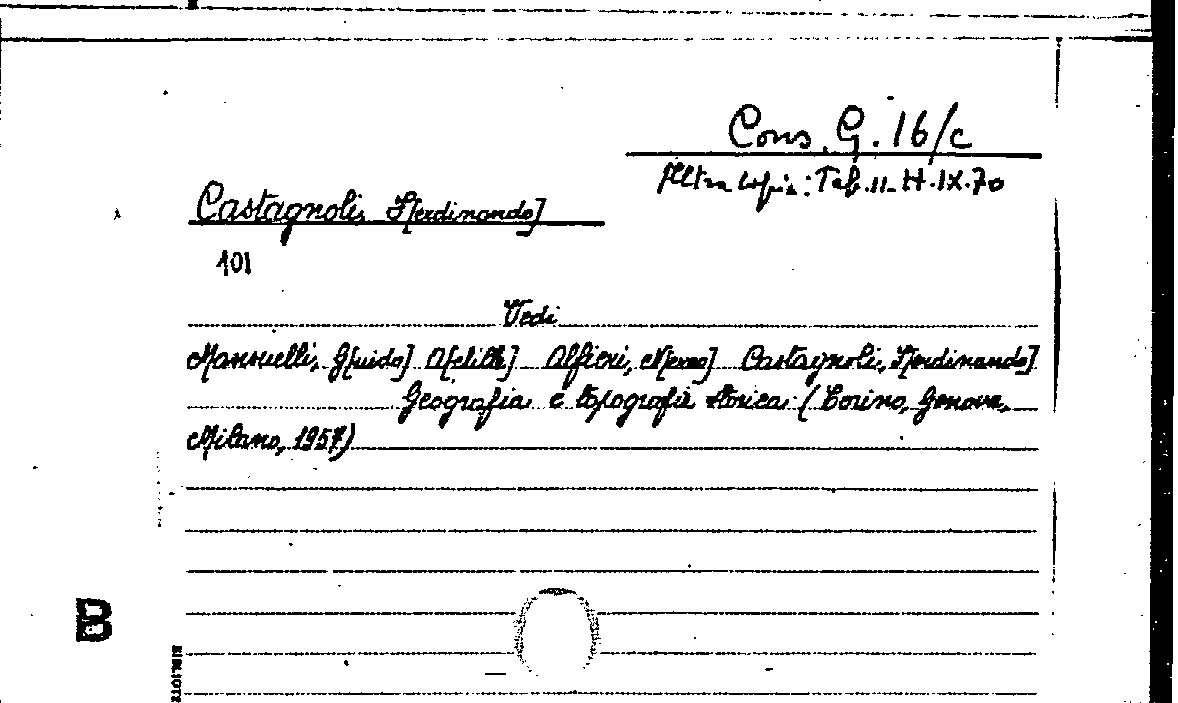 Cons. G. 16/c
Altra copia: Taf. II- H. IX. 70
Castagnoli, F[erdinando]
101
Vedi
Mansuelli, G[uido] A[chille] Alfieri, N[ereo] Castagnoli, F[erdinando]
Geografia e topografia storica (Torino, Genova,
Milano, 1957)
B
BIBLIOTE